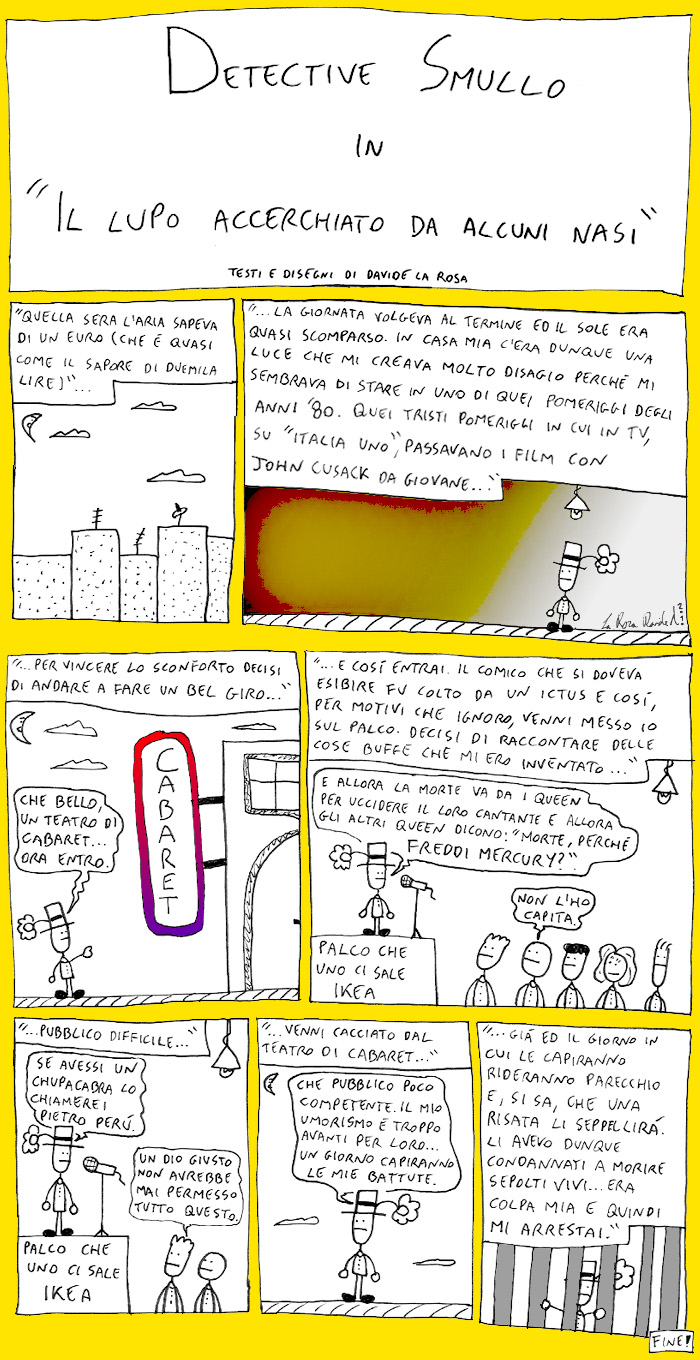 DETECTIVE SMULLO
IN
"IL LUPO ACCERCHIATO DA ALCUNI NASI"
TESTI E DISEGNI DI DAVIDE LA ROSA
"QUELLA SERA L'ARIA SAPEVA
DI UN EURO (CHE È QUASI
COME IL SAPORE DI DUEMILA
LIRE)"...
"... LA GIORNATA VOLGEVA AL TERMINE ED IL SOLE ERA
QUASI SCOMPARSO. IN CASA MIA C'ERA DUNQUE UNA
LUCE CHE MI CREAVA MOLTO DISAGIO PERCHÉ MI
SEMBRAVA DI STARE IN UNO DI QUEI POMERIGGI DEGLI
ANNI '80. QUEI TRISTI POMERIGGI IN CUI IN TV,
SU "ITALIA UNO", PASSAVANO I FILM CON
JOHN CUSACK DA GIOVANE..."
La Rosa Davide
"... PER VINCERE LO SCONFORTO DECISI
DI ANDARE A FARE UN BEL GIRO..."
CHE BELLO,
UN TEATRO DI
CABARET...
ORA ENTRO.
CABARET
"... E COSÍ ENTRAI. IL COMICO CHE SI DOVEVA
ESIBIRE FU COLTO DA UN ICTUS E COSÍ,
PER MOTIVI CHE IGNORO, VENNI MESSO IO
SUL PALCO. DECISI DI RACCONTARE DELLE
COSE BUFFE CHE MI ERO INVENTATO..."
E ALLORA LA MORTE VA DA I QUEEN
PER UCCIDERE IL LORO CANTANTE E ALLORA
GLI ALTRI QUEEN DICONO: "MORTE, PERCHÉ
FREDDI MERCURY?".
NON L'HO
CAPITA.
PALCO CHE
UNO CI SALE
IKEA
"... PUBBLICO DIFFICILE..."
SE AVESSI UN
CHUPACABRA LO
CHIAMEREI
PIETRO PERÚ.
UN DIO GIUSTO
NON AVREBBE
MAI PERMESSO
TUTTO QUESTO.
PALCO CHE
UNO CI SALE
IKEA
"... VENNI CACCIATO DAL
TEATRO DI CABARET..."
CHE PUBBLICO POCO
COMPETENTE. IL MIO
UMORISMO È TROPPO
AVANTI PER LORO...
UN GIORNO CAPIRANNO
LE MIE BATTUTE.
"... GIÁ ED IL GIORNO IN
CUI LE CAPIRANNO
RIDERANNO PARECCHIO
E, SI SA, CHE UNA
RISATA LI SEPPELLIRÁ.
LI AVEVO DUNQUE
CONDANNATI A MORIRE
SEPOLTI VIVI... ERA
COLPA MIA E QUINDI
MI ARRESTAI."
FINE!